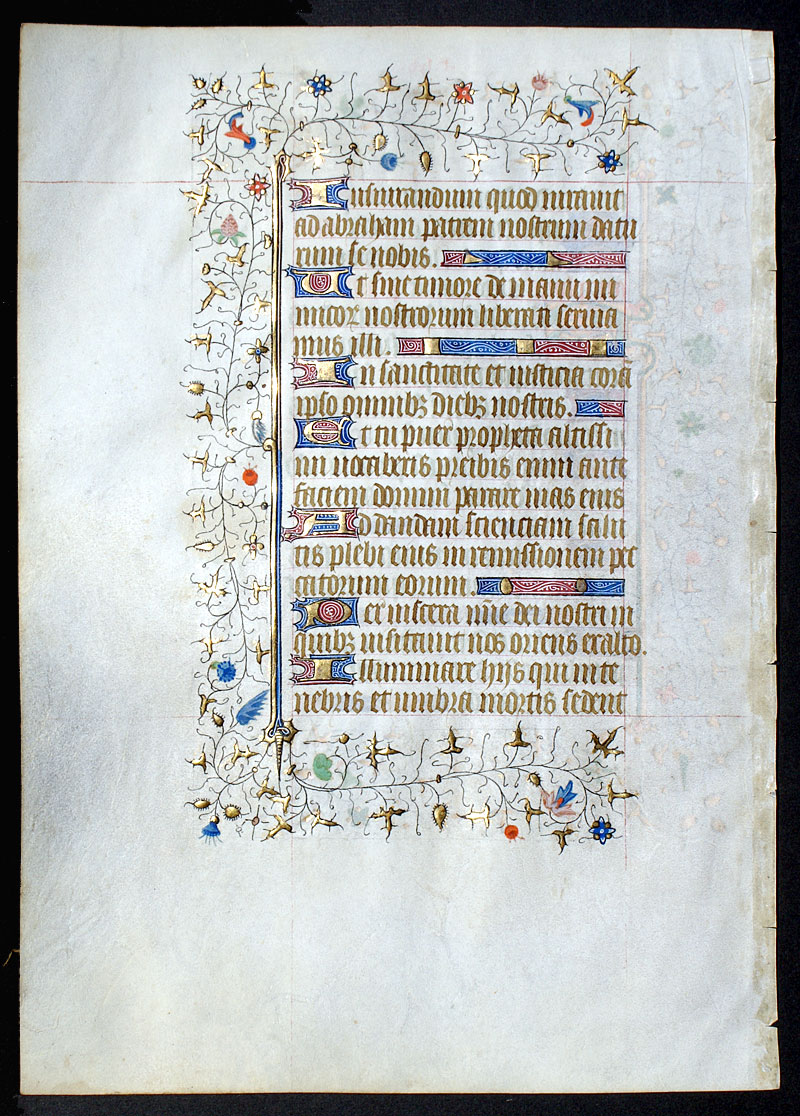 Iusiurandum quod iurauit
ad abraham patrem nostrum datu
rum se nobis.
Ut sine timore de manu ini
micorꝝ nostrorum liberati seruia
mus illi.
In sanctitate et iusticia corā
ipso omnibꝫ diebꝫ nostris.
Et tu puer propheta altissi
mi uocaberis preibis enim ante
faciem domini parare uias eius
Ad dandam scienciam salu
tis plebi eius in remissionem pec
catorum eorum.
Per uiscera mīe dei nostri in
quibꝫ uisitauit nos oriens exalto.
Illuminare hijs qui in te
nebris et umbra mortis sedent